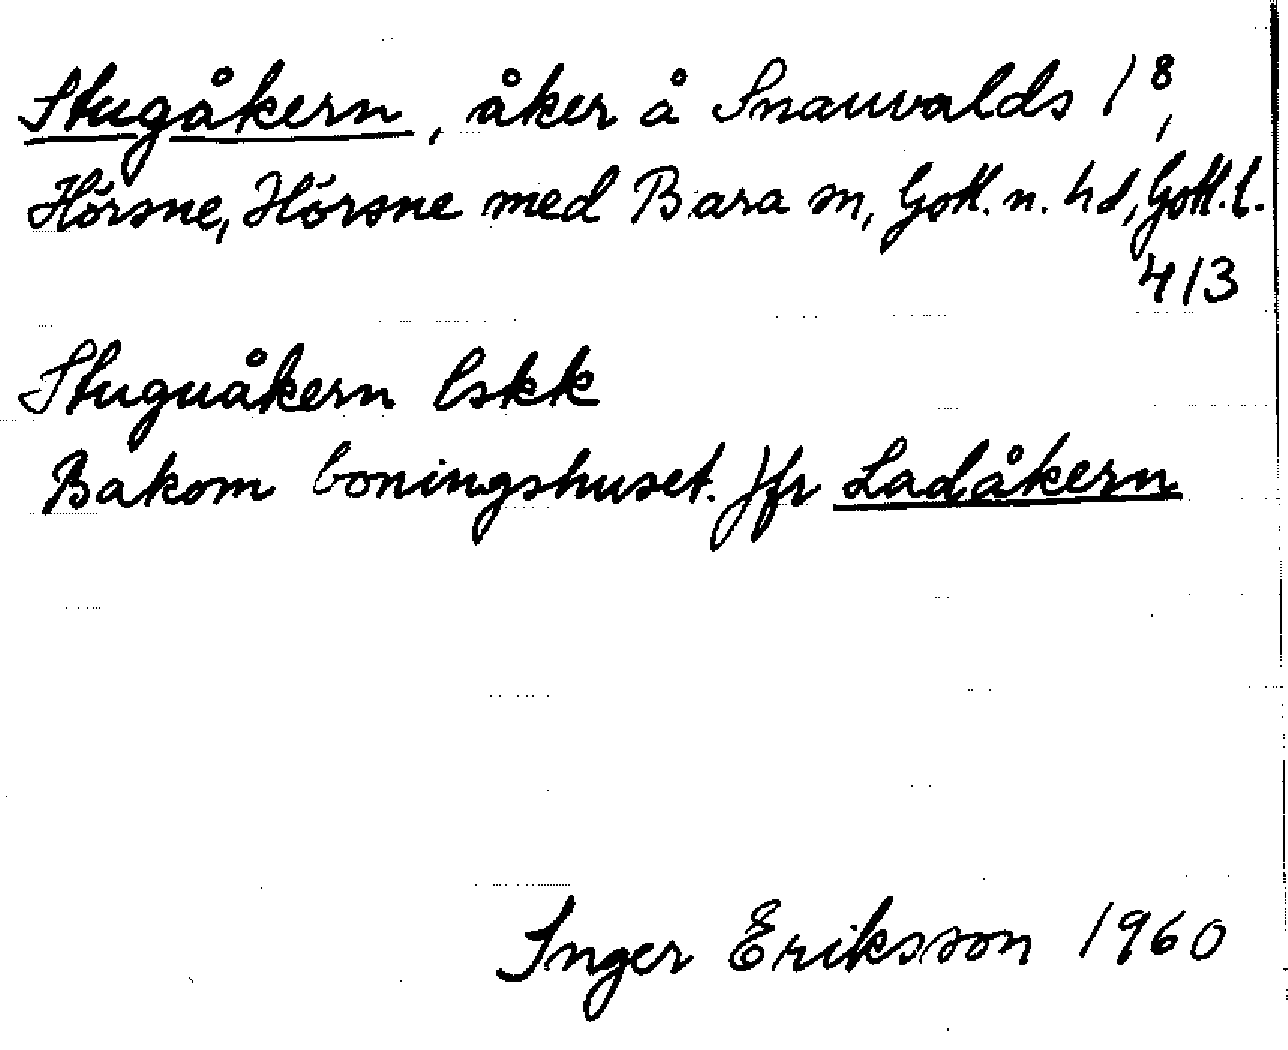 Stugåkern, åker å Snauvalds 1⁸,
Hörsne, Hörsne med Bara sn, Gotl. n. hd, Gotl. l.
413
Stuguåkern lskk
Bakom boningshuset. Jfr Ladåkern
Inger Eriksson 1960